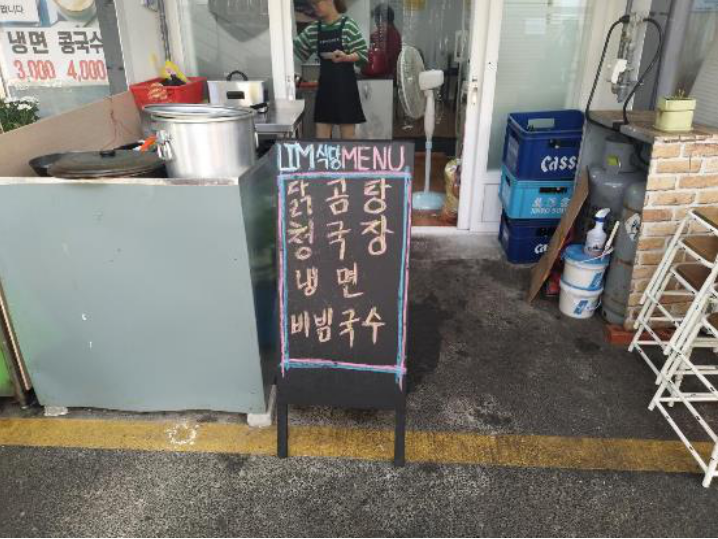 냉면 콩국수
3,000 4,000
LIM식당MENU
닭곰탕
청국장
냉면
비빔국수
Cass